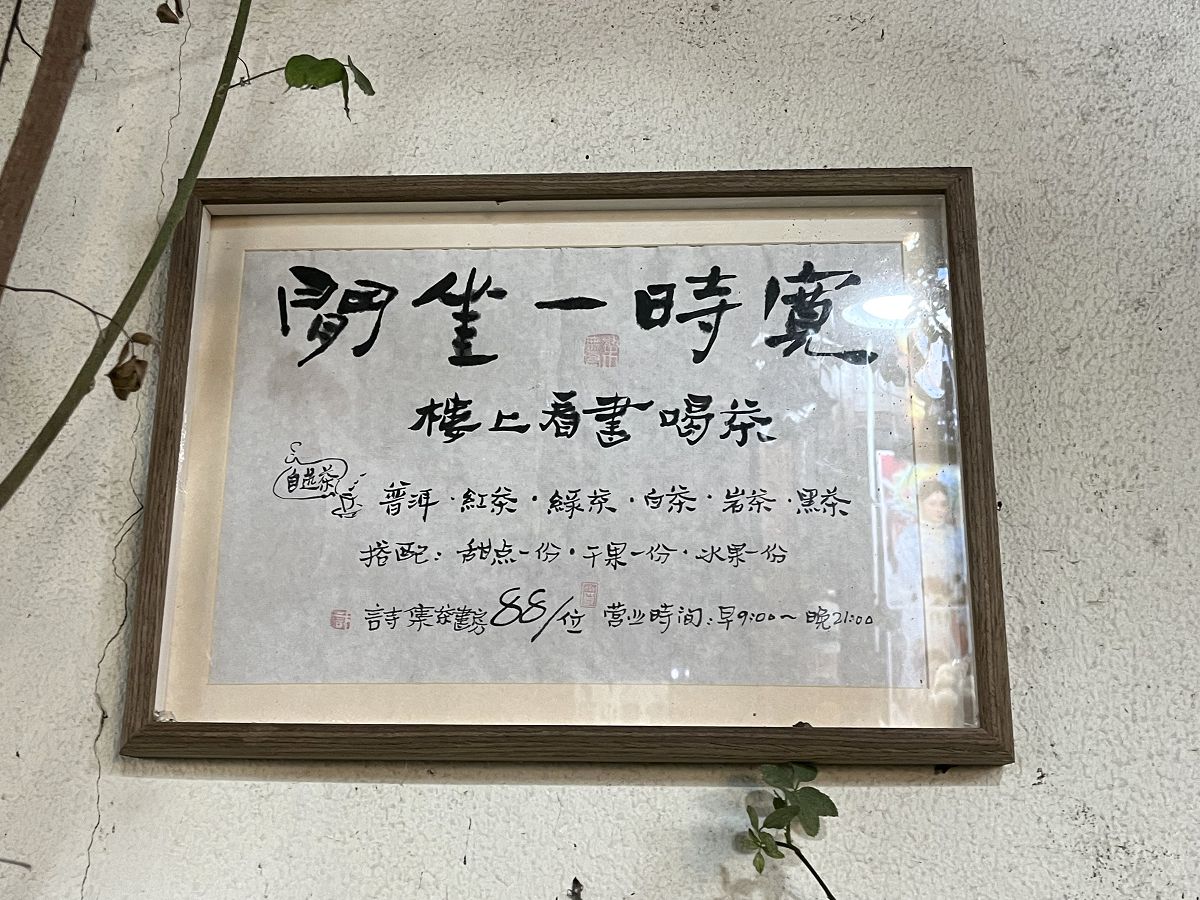 閒坐一時寬
樓上看書喝茶
自选茶
普洱·紅茶·綠茶·白茶·岩茶·黑茶
搭配：甜点一份·干果一份·水果一份
詩集茶書房 88/位 营业時间：早9:00~晚21:00